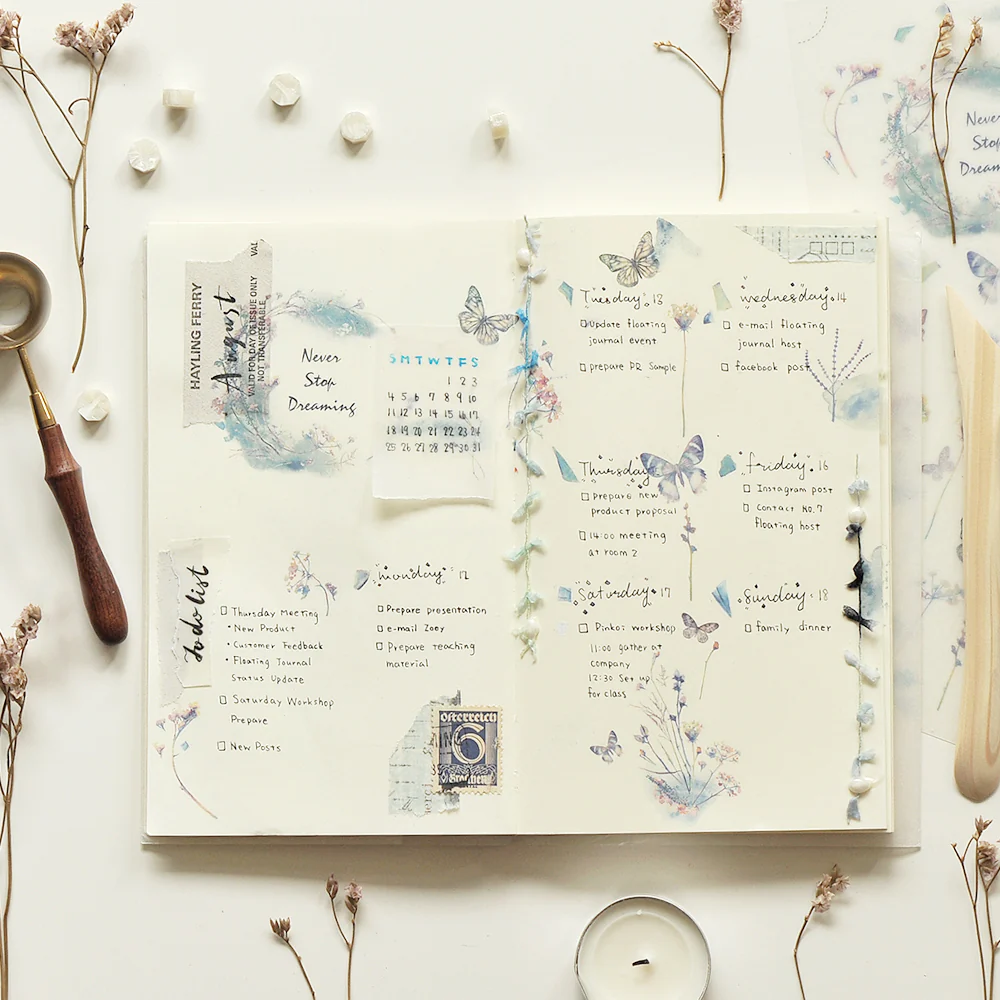 HAYLING FERRY
August
VAL
VALID FOR DAY OF ISSUE ONLY
NOT TRANSFERABLE
Never
Stop
Dreaming
S M T W T F S
1 2 3
4 5 6 7 8 9 10
11 12 13 14 15 16 17
18 19 20 21 22 23 24
25 26 27 28 29 30 31
To do list
Thursday Meeting
• New Product
• Customer Feedback
• Floating Journal
Status Update
Saturday Workshop
Prepare
New Posts
monday 12
Prepare presentation
e-mail Zoey
Prepare teaching
material
österreich
6
Groschen
Tuesday 13
Update floating
journal event
prepare PR Sample
wednesday 14
e-mail floating
journal host
facebook post
Thursday
Prepare new
product proposal
14:00 meeting
at room 2
friday 16
Instagram post
Contact No.7
floating host
Saturday 17
Pinkoi workshop
11:00 gather at
company
12:30 Set up
for class
Sunday 18
family dinner
Never
Stop
Dream